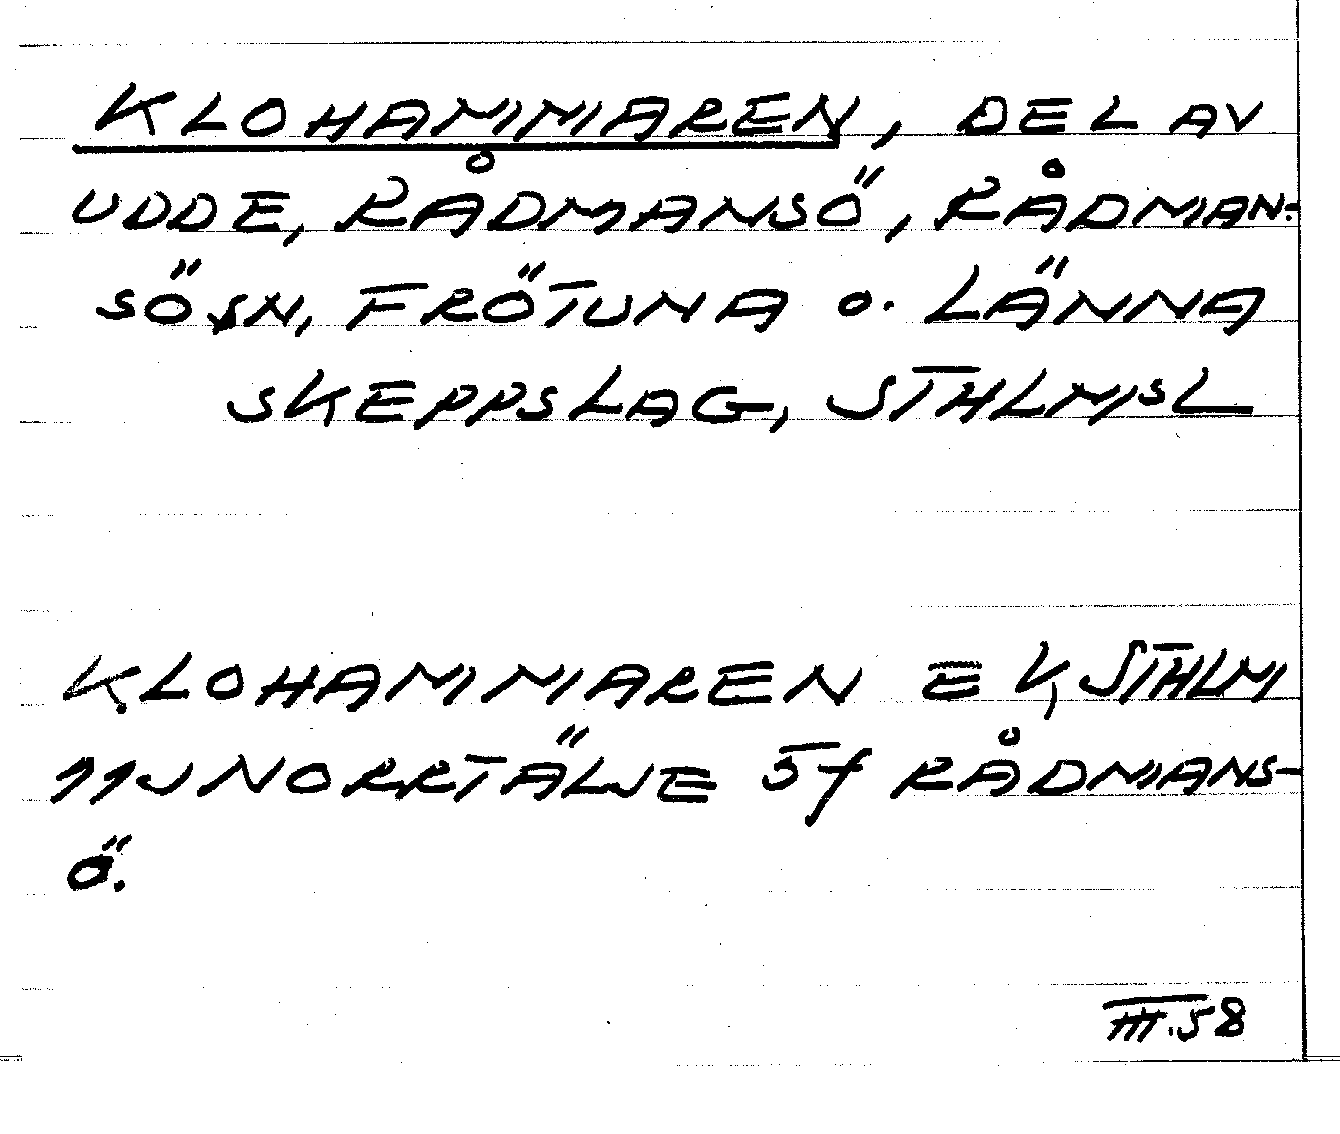 KLOHAMMAREN, DEL AV
UDDE, RÅDMANSÖ, RÅDMAN-
SÖ SN, FRÖTUNA O. LÄNNA
SKEPPSLAG, STHLMSL
KLOHAMMAREN EK, STHLM
11J NORRTÄLJE 5f RÅDMANS-
Ö.
III.58